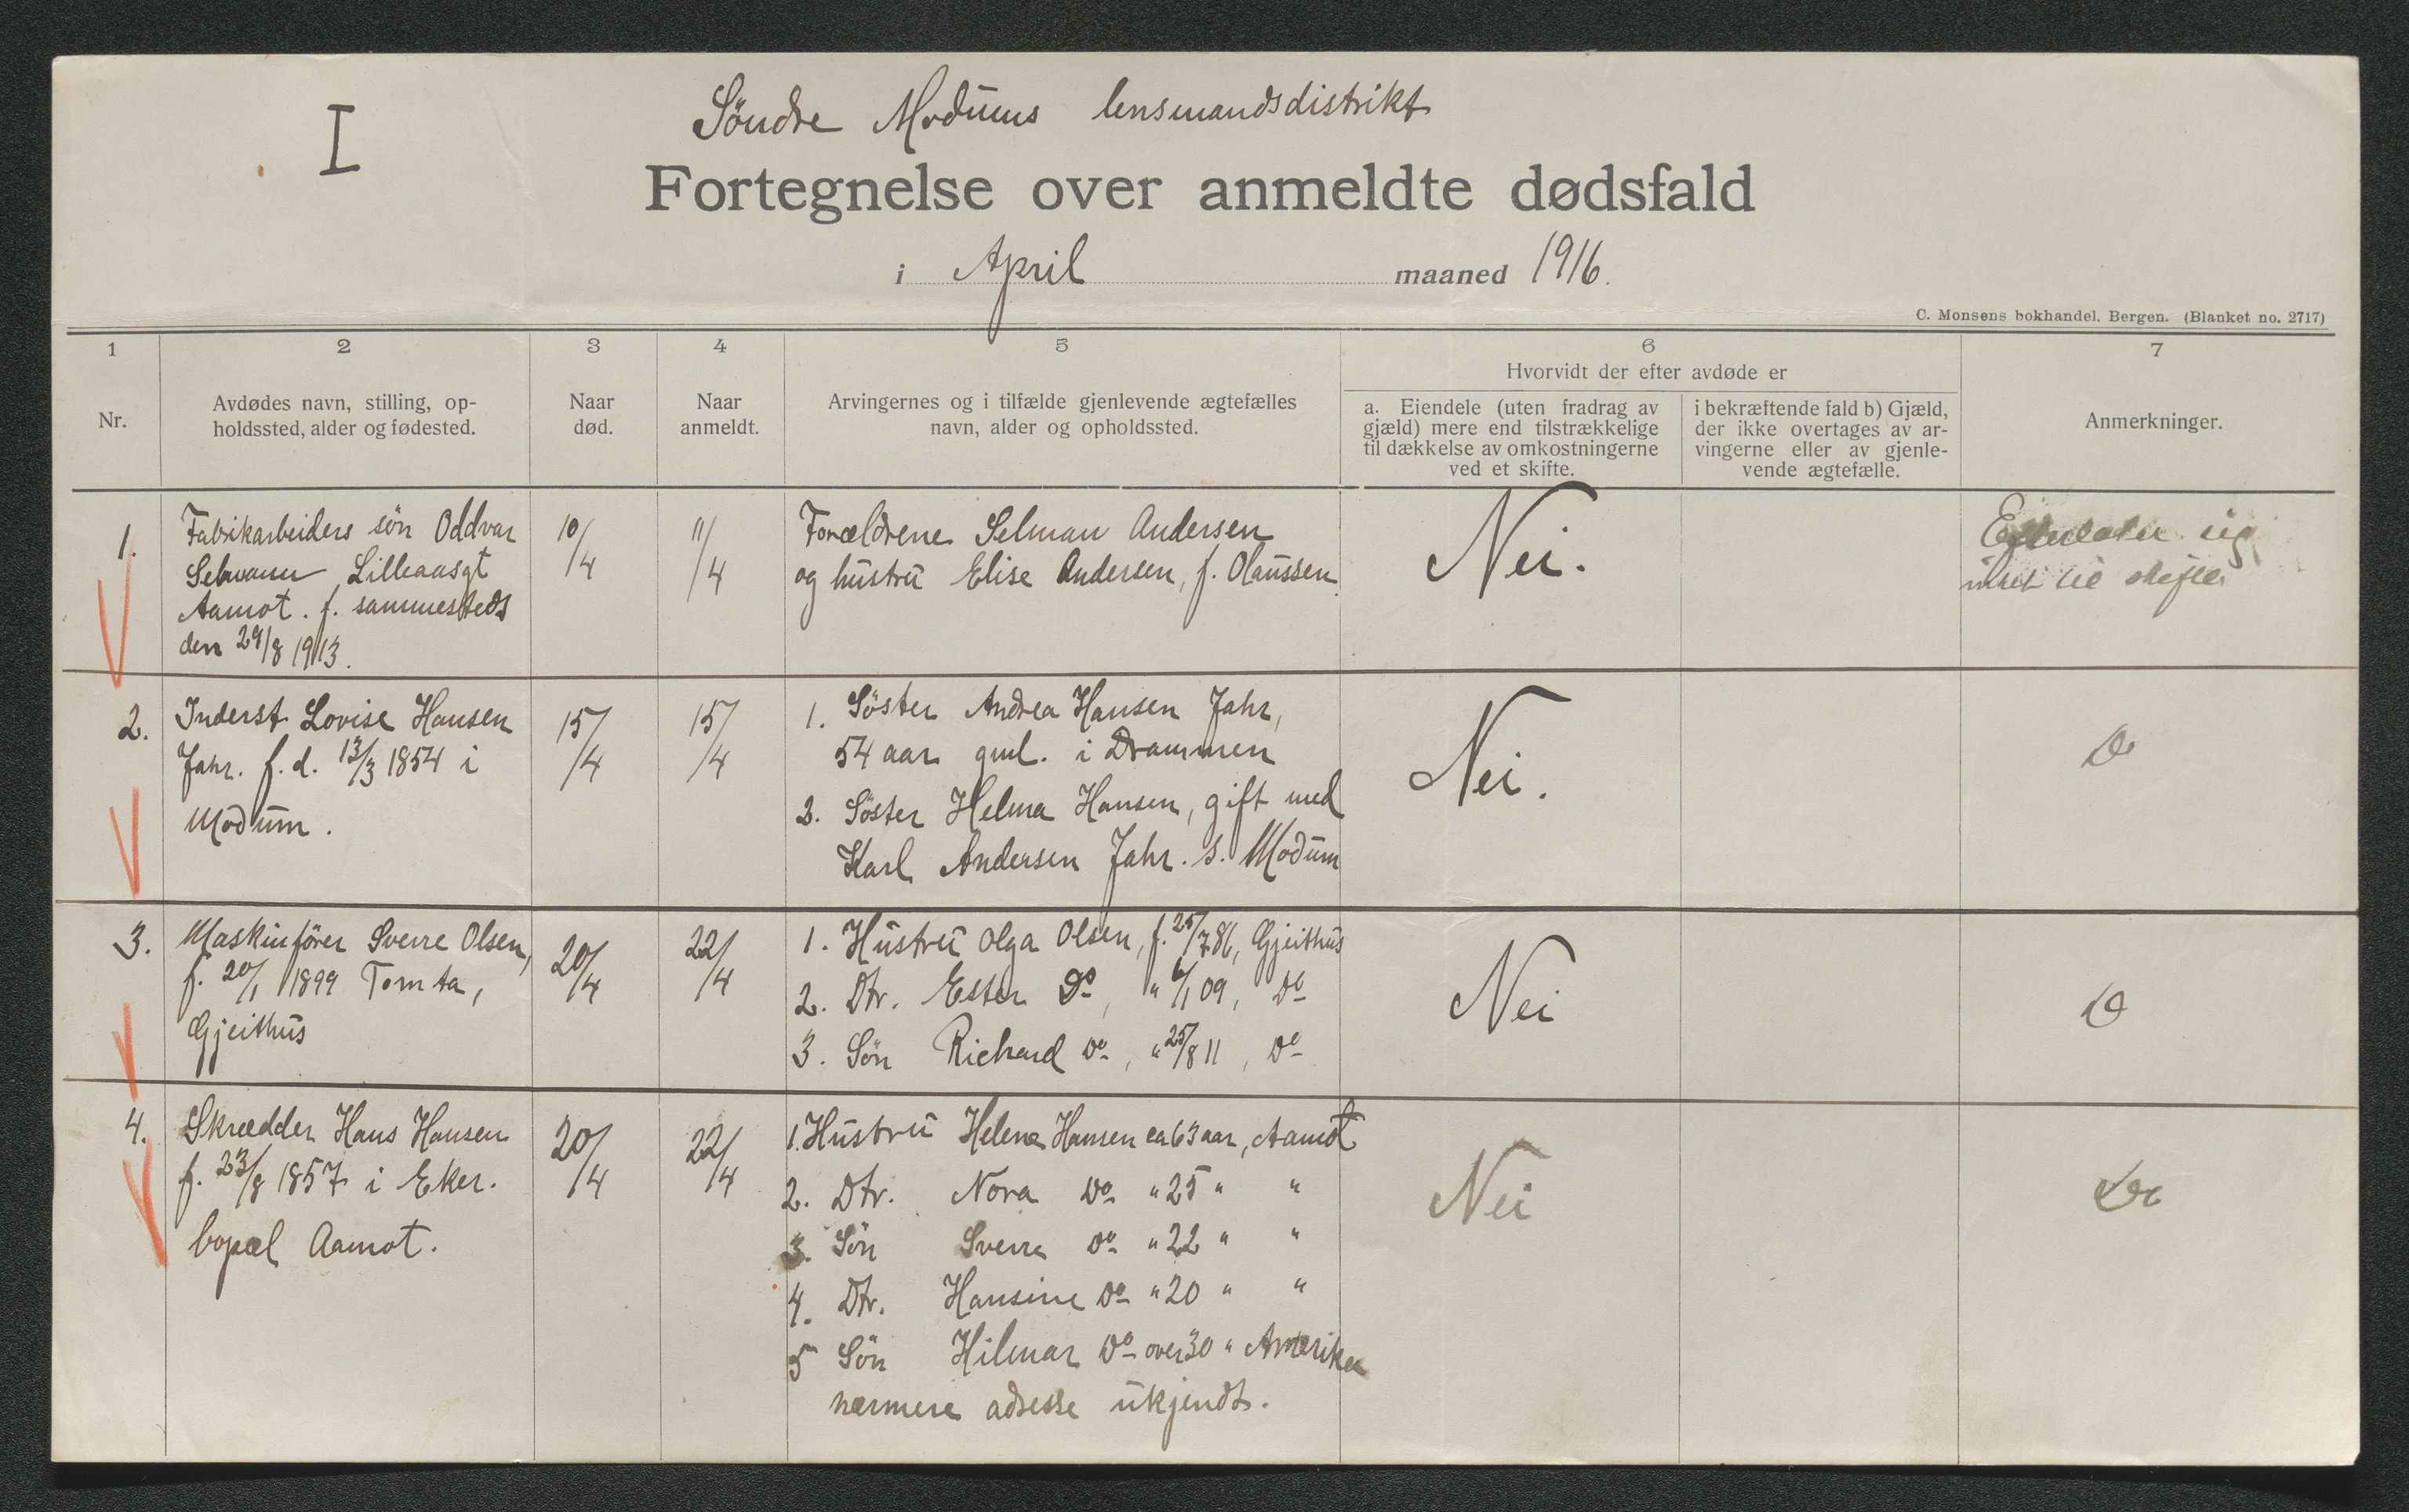 I
Söndre Modums lensmandsdistrikt
Fortegnelse over anmeldte dødsfald
i April maaned 1916.
C. Monsens bokhandel, Bergen. (Blanket no. 2717)
1
Nr.
2
Avdødes navn, stilling, op-
holdssted, alder og fødested.
3
Naar
død.
4
Naar
anmeldt.
5
Arvingernes og i tilfælde gjenlevende ægtefælles
navn, alder og opholdssted.
6
Hvorvidt der efter avdøde er
a. Eiendele (uten fradrag av
gjæld) mere end tilstrækkelige
til dækkelse av omkostningerne
ved et skifte.
i bekræftende fald b) Gjæld,
der ikke overtages av ar-
vingerne eller av gjenle-
vende ægtefælle.
7
Anmerkninger.
1.
Fabrikarbeiders sön Oddvar
Lilleaasgt
Aamot. f. sammesteds
den 29/8 1913.
10/4
11/4
Forældrene Selman Andersen
og hustru Elise Andersen, f. Olaussen.
Nei.
Efterlater sig
intet til skifte.
2.
Inderst Lovise Hansen
Jahr. f. d. 13/3 1854 i
Modum.
15/4
15/4
1. Söster Andrea Hansen Jahr,
54 aar gml. i Drammen
2. Söster Helma Hansen, gift med
Karl Andersen Jahr. S. Modum
Nei.
Do
3.
Maskinförer Sverre Olsen,
f. 20/1 1899 Tomta,
Gjeithus
20/4
22/4
1. Hustru Olga Olsen, f. 25/7 86, Gjeithus
2. Dtr. Ester Do, " 6/1 09, Do
3. Sön Richard Do, " 25/8 11, Do
Nei
Do
4.
Skrædder Hans Hansen
f. 23/8 1857 i Eker.
bopæl Aamot.
20/4
22/4
1. Hustru Helene Hansen ca 63 aar, Aamot
2. Dtr. Nora Do " 25 " "
3. Sön Sverre Do " 22 " "
4. Dtr. Hansine Do " 20 " "
5 Sön Hilmar Do over 30 " Amerika
nærmere adresse ukjendt.
Nei
Do